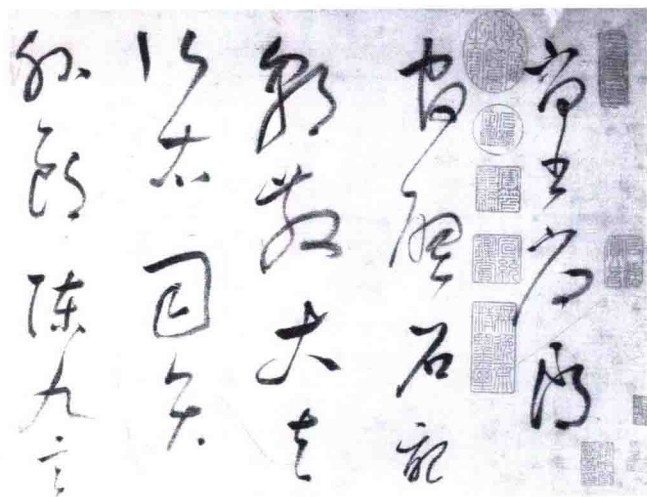 尚書省郎
官廳石記
朝散大夫
行右司員
外郎陳九言